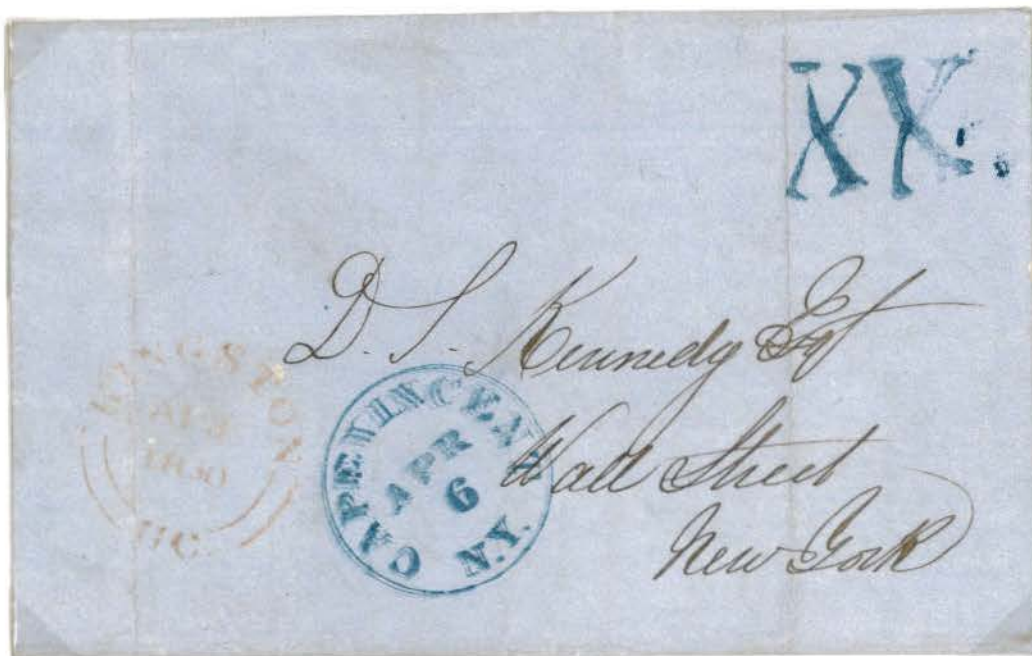 XX.
D. S. Kennedy Esqr
Wall Street
New York
KINGSTON
1850
U.C.
CAPE VINCENT
APR
6
N.Y.